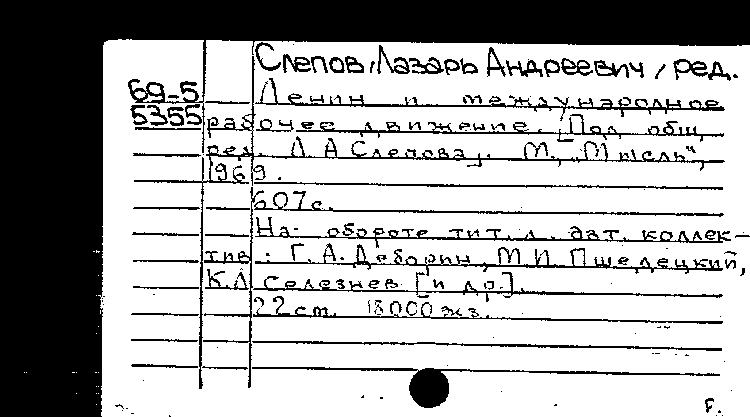 Слепов, Лазарь Андреевич, ред.
69-5
5355
Ленин и международное
рабочее движение. [Под общ.
ред. Л. А Слепова]. М., "Мысль",
1969.
607 с.
На обороте тит. л. дат. коллек-
тив: Г. А. Деборин, М. И. Пшедецкий,
К. Л Селезнев [и др.].
22 см. 18000 экз.